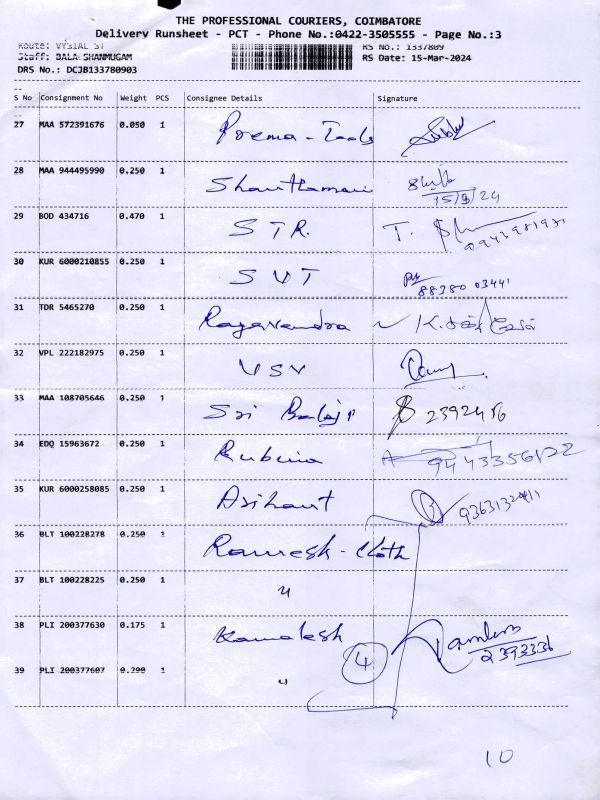 THE PROFESSIONAL COURIERS, COIMBATORE
Delivery Runsheet - PCT - Phone No.:0422-3505555 - Page No.:3
Route: VYSIAL ST RS No.: 1337809
Staff: BALA SHANMUGAM RS Date: 15-Mar-2024
DRS No.: DCJB133780903
S No Consignment No Weight PCS Consignee Details Signature
27 MAA 572391676 0.050 1 Poema-Tools
28 MAA 944495990 0.250 1 Shanthamani
15/3/24
29 BOD 434716 0.470 1 STR. T.
30 KUR 6000210855 0.250 1 SVT
88380 03441
31 TDR 5465270 0.250 1 Ragavendra
32 VPL 222182975 0.250 1 VSV
33 MAA 108705646 0.250 1 Sri Balaji 2392416
34 EDQ 15963672 0.250 1 Rubina
35 KUR 6000258085 0.250 1 Arihant
36 BLT 100228278 0.250 1 Ramesh-Cloth
37 BLT 100228225 0.250 1 "
38 PLI 200377630 0.175 1 Kamalesh
4 2393336
39 PLI 200377607 0.200 1 "
10